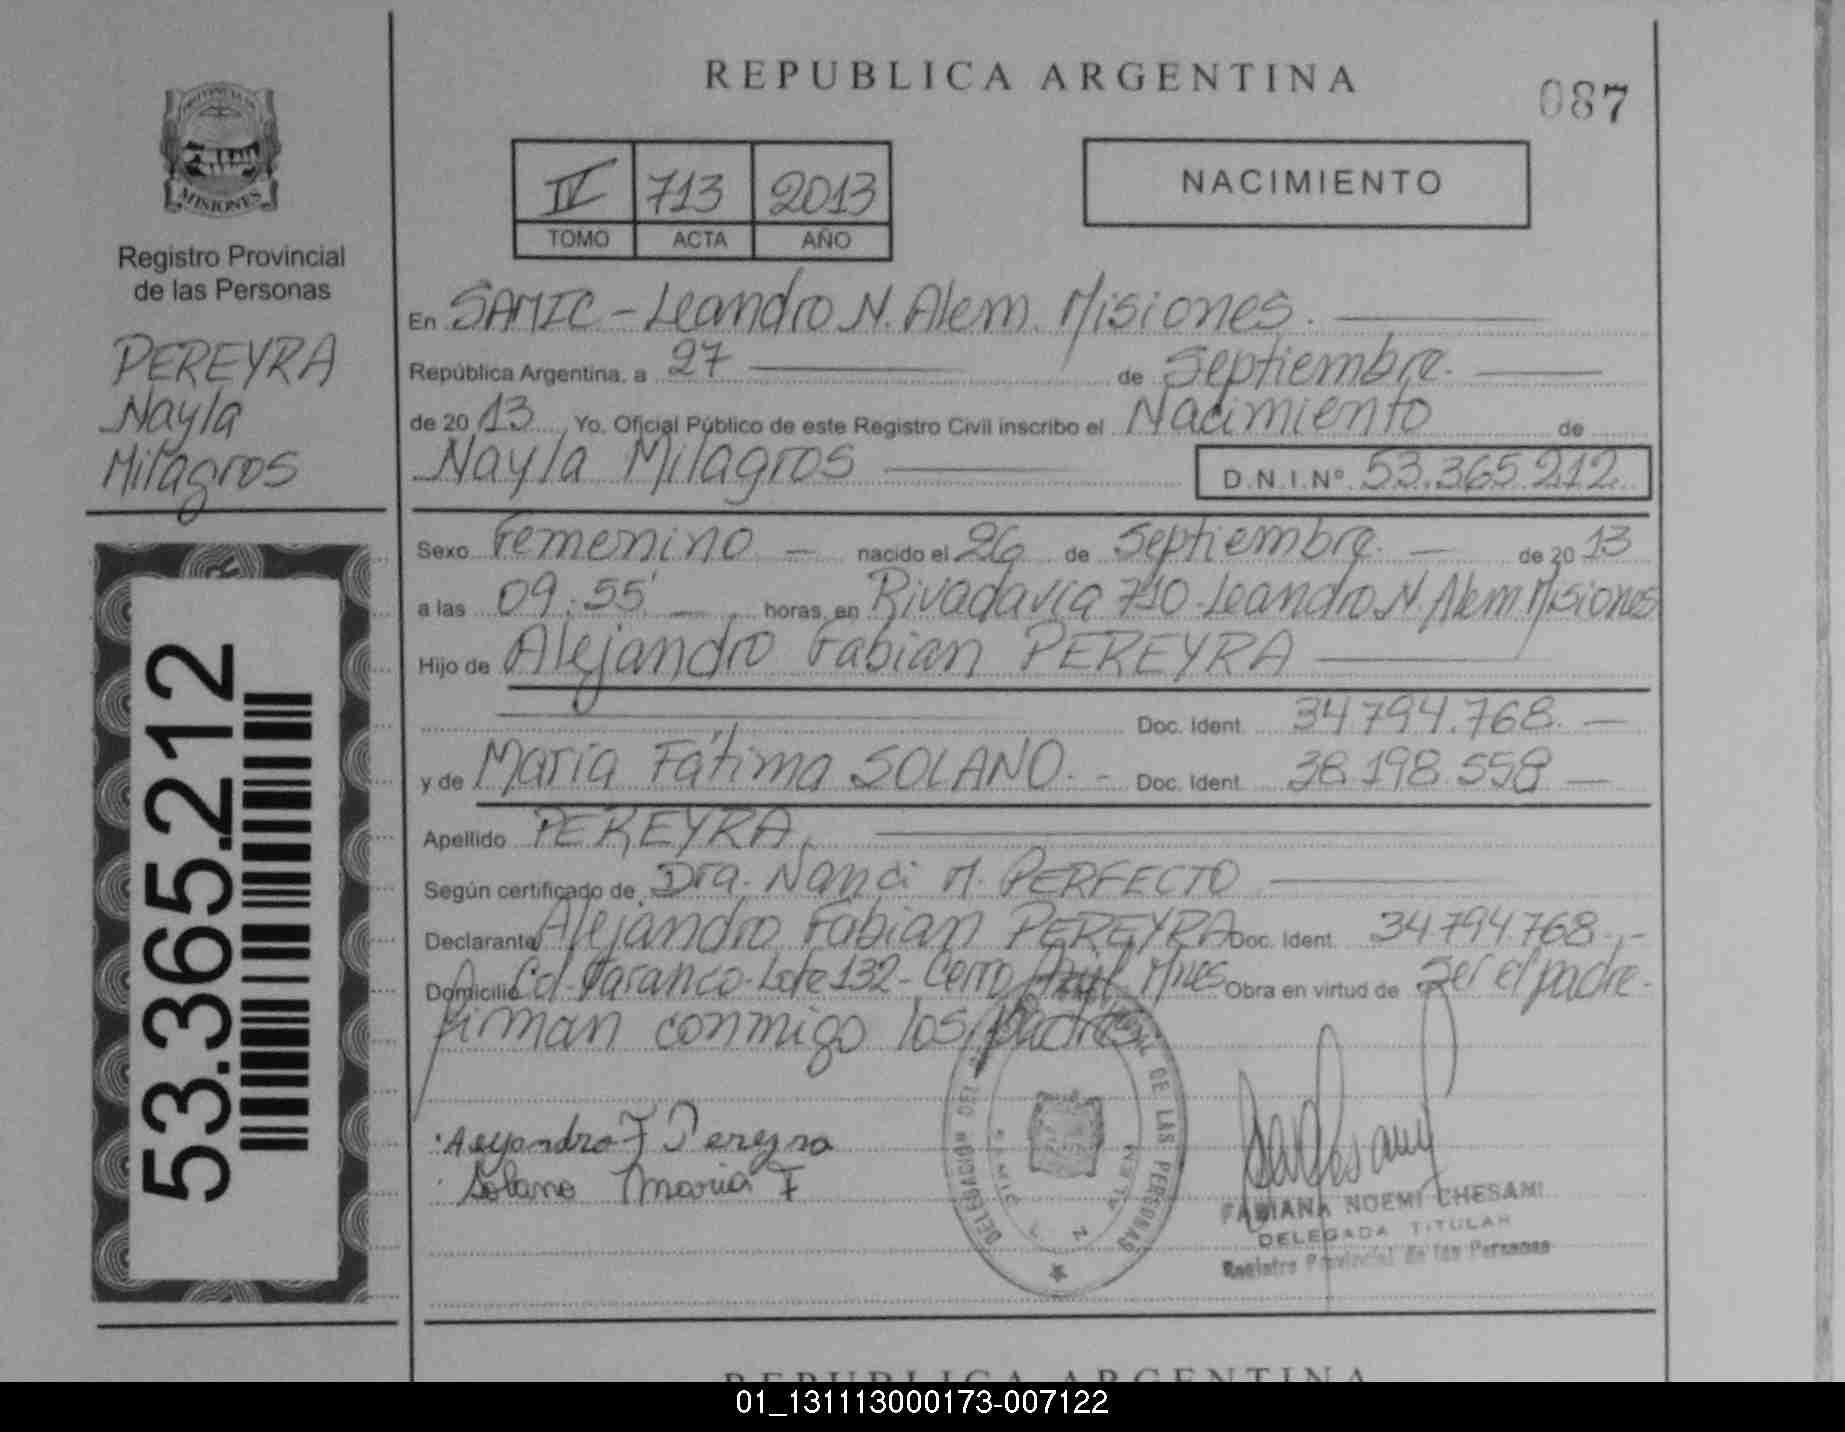 REPUBLICA ARGENTINA
087
PROVINCIA DE
MISIONES
Registro Provincial
de las Personas
PEREYRA
Nayla
Milagros
53.365.212
IV 713 2013
TOMO ACTA AÑO
NACIMIENTO
En SAMIC - Leandro N. Alem. Misiones.
República Argentina, a 27 de Septiembre.
de 2013 Yo, Oficial Público de este Registro Civil inscribo el Nacimiento de
Nayla Milagros D.N.I.Nº 53.365.212.
Sexo Femenino - nacido el 26 de Septiembre. - de 2013
a las 09:55' horas, en Rivadavia 710 - Leandro N. Alem Misiones
Hijo de Alejandro Fabian PEREYRA
Doc. Ident. 34.794.768. -
y de María Fátima SOLANO. - Doc. Ident. 38.198.558 -
Apellido PEREYRA.
Según certificado de Dra. Nanci M. PERFECTO
Declarante Alejandro Fabian PEREYRA Doc. Ident. 34.794.768.-
Domicilio Lote 132 - Cerro Azul Mnes Obra en virtud de Ser el padre.
Firman conmigo los padres
Alejandro F Pereyra
Solano Maria F
DELEGACION DEL DE LAS PERSONAS
SAMIC L N ALEM
FABIANA NOEMI CHESANI
DELEGADA TITULAR
Registro Provincial de las Personas
REPUBLICA ARGENTINA
01_131113000173-007122